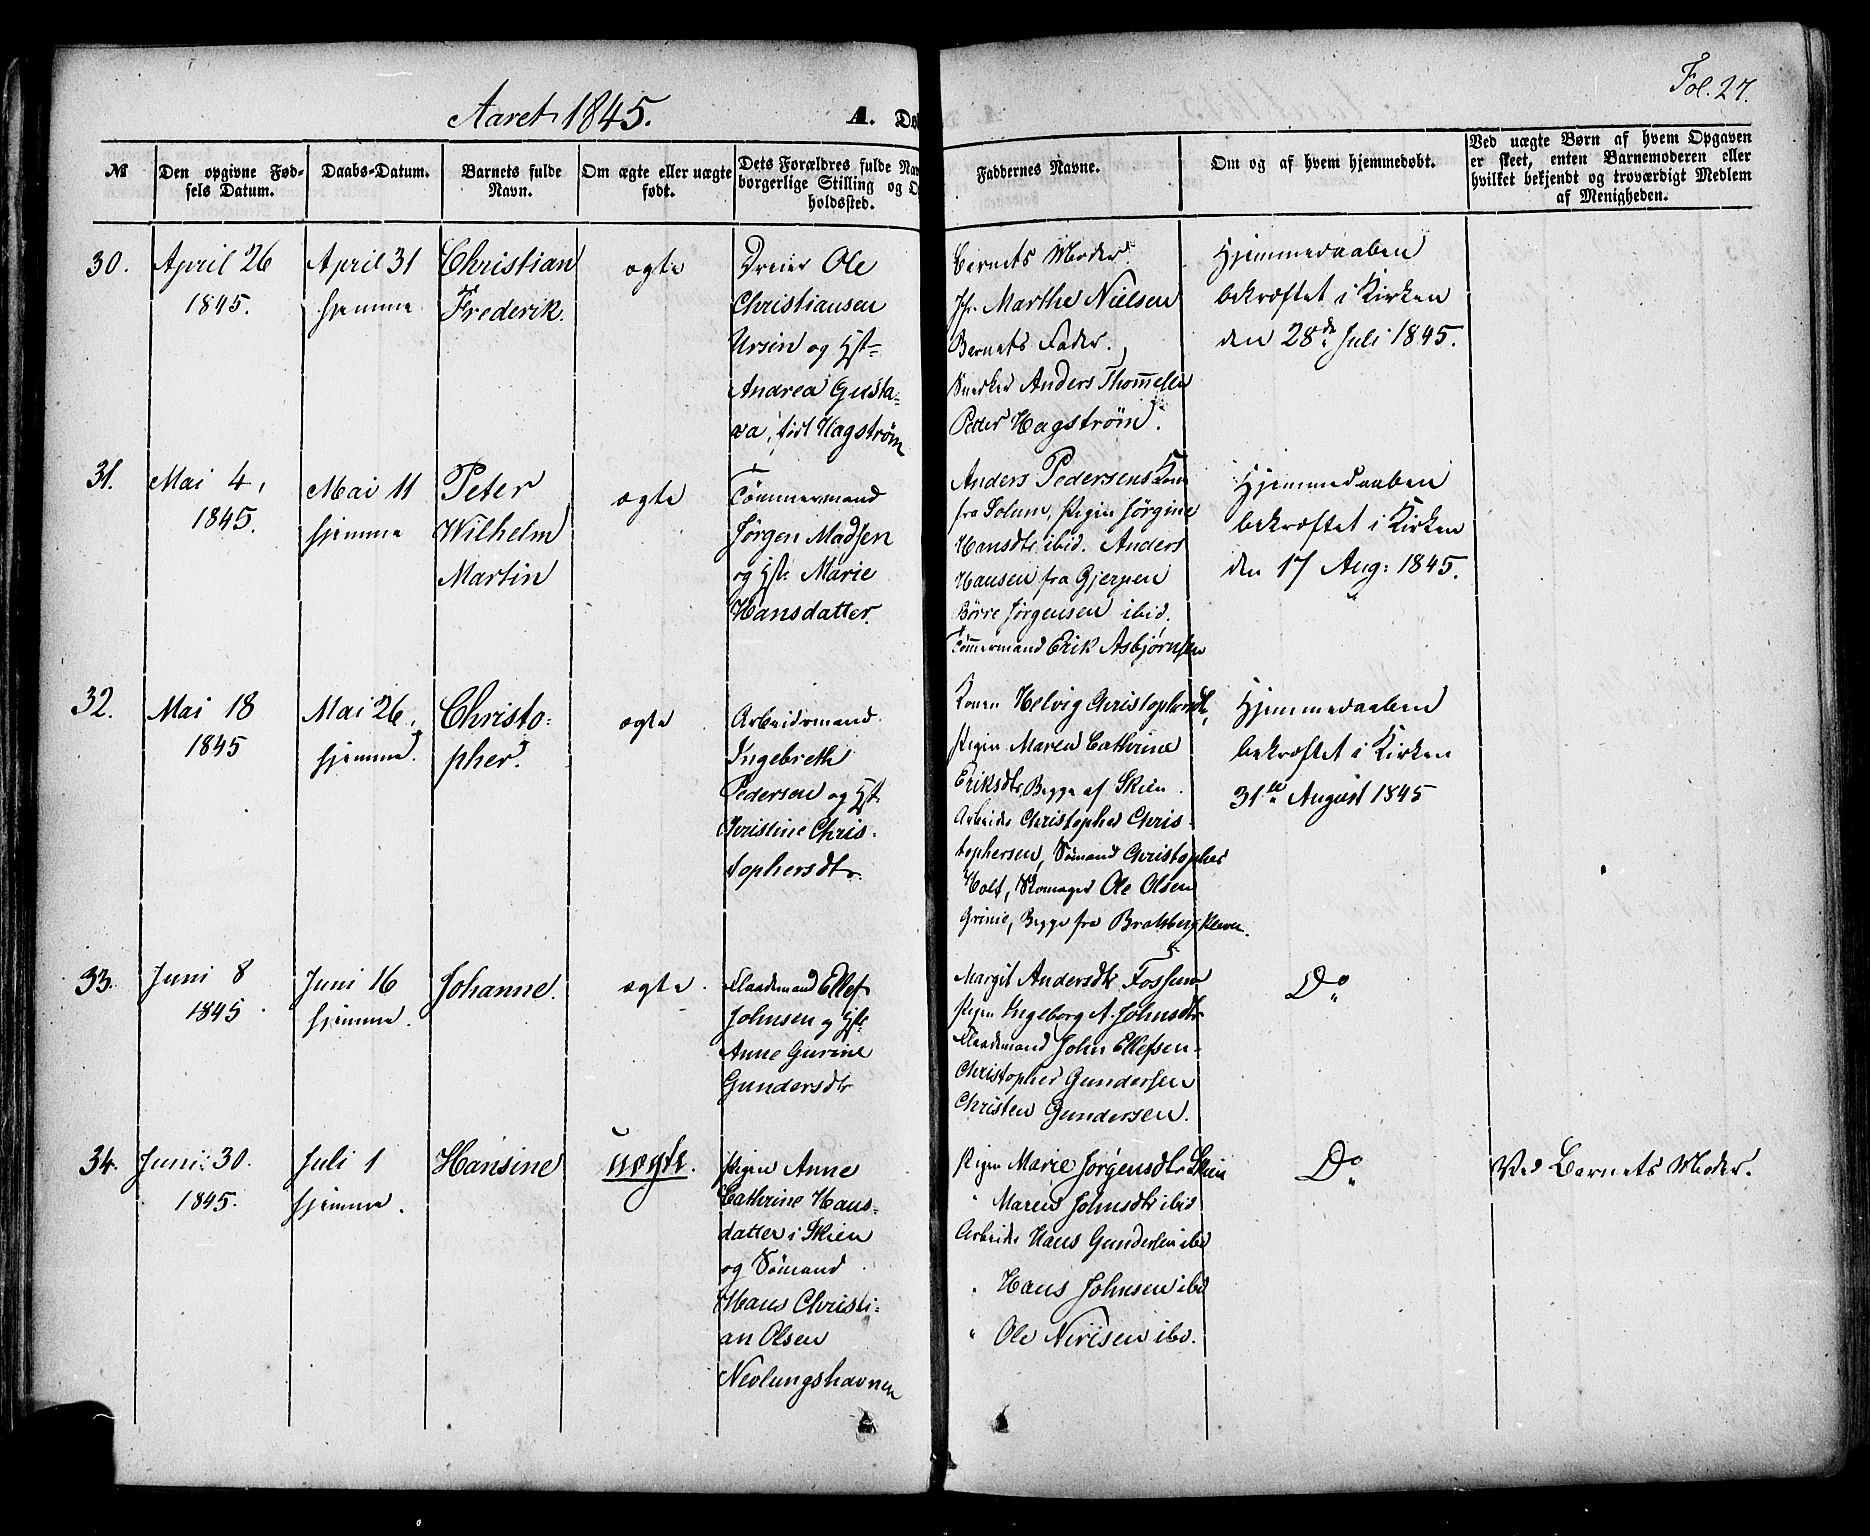 Fol. 27.
Aaret 1845.
A.
№
Den opgivne Fød-
sels Datum.
Daabs-Datum.
Barnets fulde
Navn.
Om ægte eller uægte
født.
Dets Forældres fulde Nav
borgerlige Stilling og O
holdssted.
Faddernes Navne.
Om og af hvem hjemmedøbt.
Ved uægte Børn af hvem Opgaven
er skeet, enten Barnemoderen eller
hvilket bekjendt og troværdigt Medlem
af Menigheden.
30.
April 26
1845.
April 31
hjemme
Christian
Frederik.
ægte
Dreier Ole
Christiansen
Ursin og Hst-
Andrea Gusta-
va, født Hagstrøm
Barnets Moder
Jfr. Marthe Nielsen
Barnets Fader.
Snedker Anders Thommesen
Petter Hagstrøm.
Hjemmedaaben
bekræftet i Kirken
den 28de Juli 1845.
31.
Mai 4,
1845.
Mai 11
hjemme
Peter
Wilhelm
Martin
ægte
Tømmermand
Jørgen Madsen
og Hst: Marie
Hansdatter.
Anders Pedersens Kone
fra Solum, Pigen Jørgine
Hansdtr ibid. Anders
Hansen fra Gjerpen
Børre Jørgensen ibid.
Tømmermand Erik Asbjørnsen
Hjemmedaaben
bekræftet i Kirken
den 17 Aug: 1845.
32.
Mai 18
1845
Mai 26,
hjemme.
Christo-
pher.
ægte
Arbeidsmand
Ingebreth
Pedersen og Hst.
Christine Chris-
tophersdtr.
Konen Helvig Christophersdtr,
Pigen Maren Cathrine
Eriksdtr, Begge af Skien.
Arbeider Christopher Chris-
tophersen, Sømand Christopher
Holt, Skomager Ole Olsen
Grinie, Begge fra Bratsbergkleven.
Hjemmedaaben
bekræftet i Kirken
31te August 1845
33.
Juni 8
1845.
Juni 16
hjemme.
Johanne.
ægte.
Flaademand Ellef
Johnsen og Hst:
Anne Gurine
Gundersdtr
Margit Andersdtr Fossum
Pigen Ingeborg A. Johnsdtr
Flaademand John Ellefsen-
Christopher Gundersen
Christen Gundersen.
Do
34.
Juni 30.
1845.
Juli 1
hjemme.
Hansine
uægte.
Pigen Anne
Cathrine Hans-
datter i Skien
og Sømand
Hans Christi-
an Olsen
Nevlungshavnen
Pigen Marie Jørgensdtr Skien
" Maren Johnsdtr ibid
Arbeider Hans Gundersen ibid
" Hans Johnsen ibid
" Ole Nirisen ibd.
Do
Ved Barnets Moder.